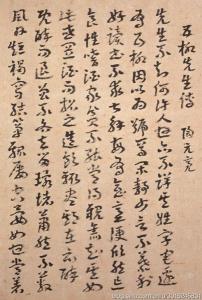 五柳先生傳 陶元亮
先生不知何許人也亦不詳其姓字宅邊
有五柳因以為號焉閑靜少言不慕榮利
好讀書不求甚解每有會意便欣然忘
食性嗜酒家貧不能常得親舊知其如
此或置酒而招之造飲輒盡期在必醉
既醉而退曾不吝情去留環堵蕭然不蔽
風日短褐穿結簞瓢屢空晏如也常著